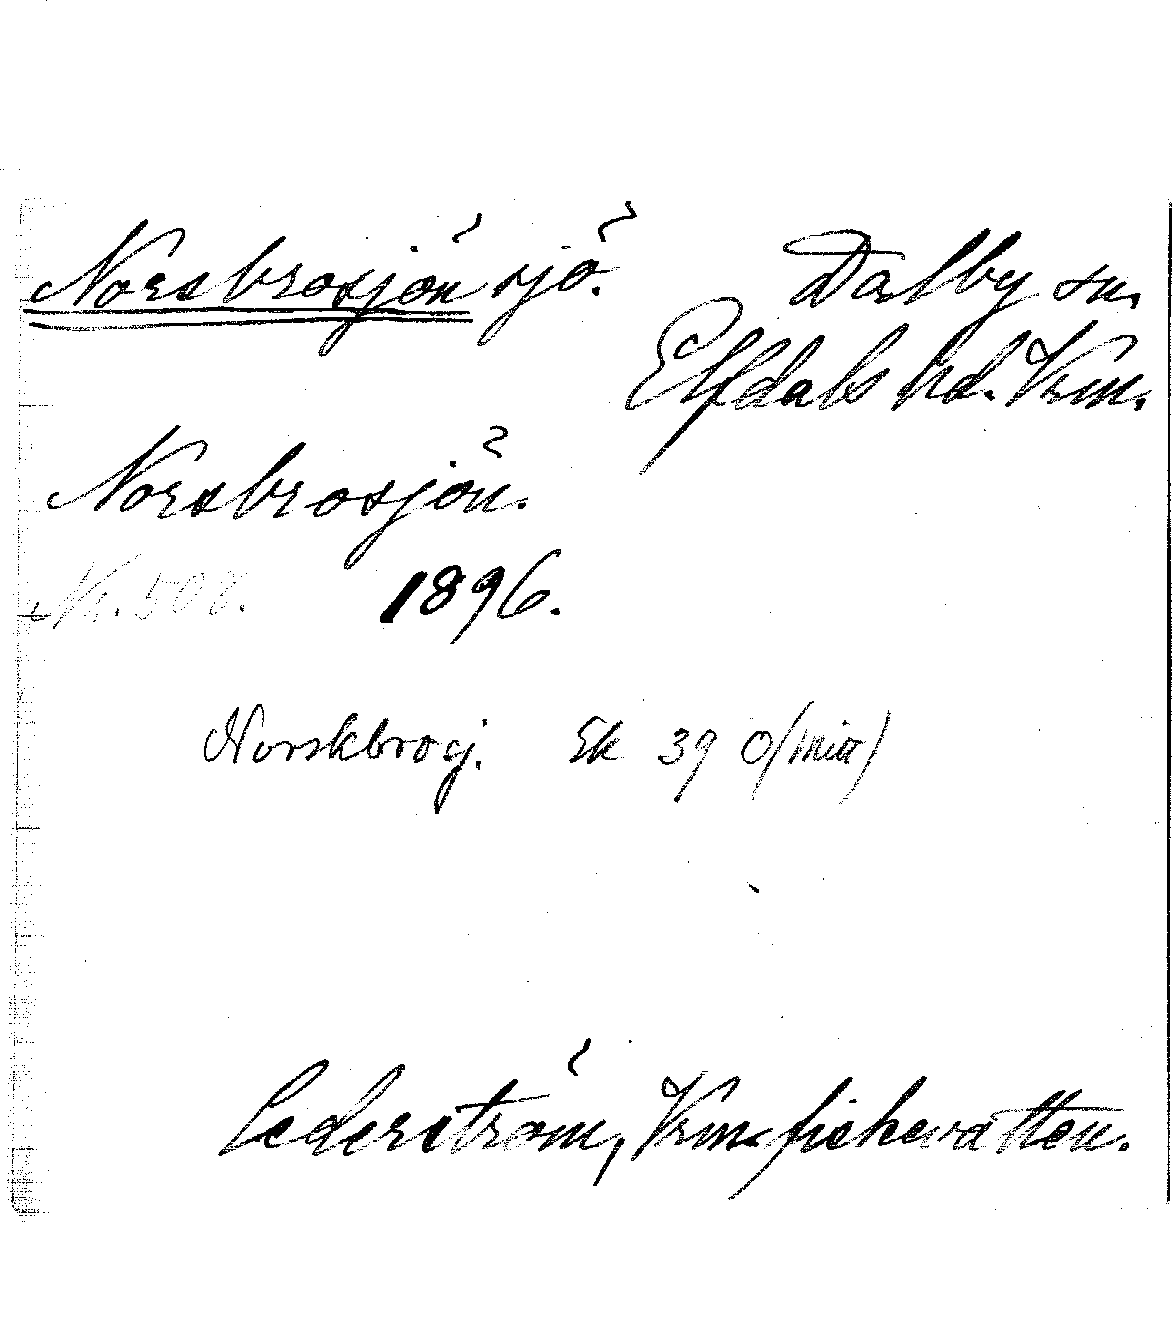 Norsbrosjön sjö. Dalby sn.
Elfdals hd. Vrm.
Norsbrosjön.
Nr. 508. 1896.
Norskbrosj. Ek 39 O/
Cederström, Vrm. fiskevatten.